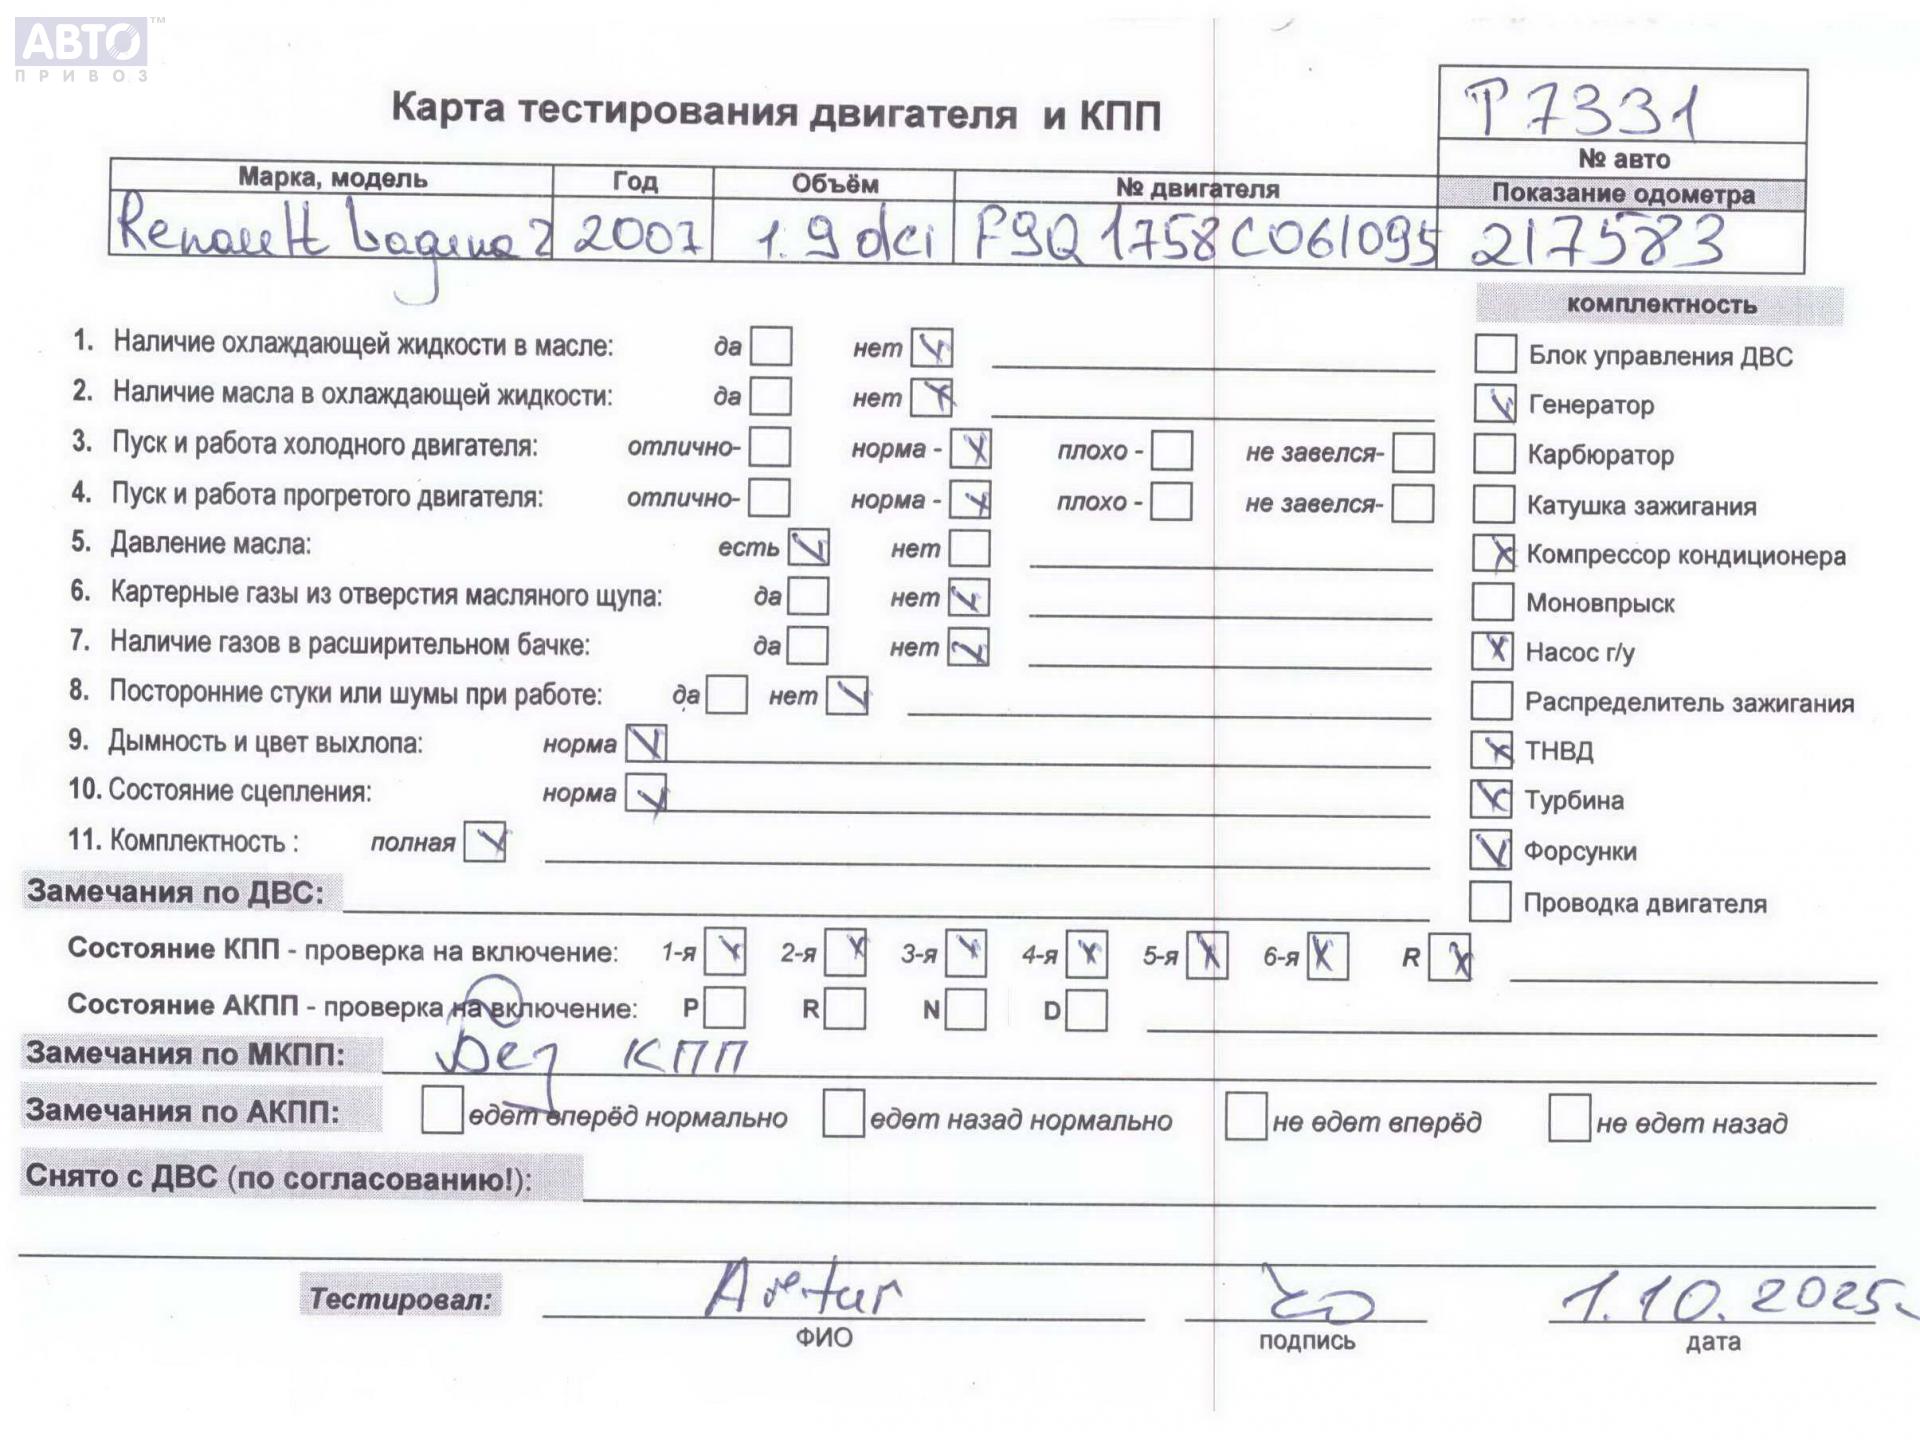 АВТО™
ПРИВОЗ
Карта тестирования двигателя и КПП
Р7331
№ авто
Марка, модель Год Объём № двигателя Показание одометра
Renault Laguna 2 2007 1.9 dci F9Q1758C061095 217583
комплектность
1. Наличие охлаждающей жидкости в масле: да нет
2. Наличие масла в охлаждающей жидкости: да нет
3. Пуск и работа холодного двигателя: отлично- норма - плохо - не завелся-
4. Пуск и работа прогретого двигателя: отлично- норма - плохо - не завелся-
5. Давление масла: есть нет
6. Картерные газы из отверстия масляного щупа: да нет
7. Наличие газов в расширительном бачке: да нет
8. Посторонние стуки или шумы при работе: да нет
9. Дымность и цвет выхлопа: норма
10. Состояние сцепления: норма
11. Комплектность : полная
Блок управления ДВС
Генератор
Карбюратор
Катушка зажигания
Компрессор кондиционера
Моновпрыск
Насос г/у
Распределитель зажигания
ТНВД
Турбина
Форсунки
Проводка двигателя
Замечания по ДВС:
Состояние КПП - проверка на включение: 1-я 2-я 3-я 4-я 5-я 6-я R
Состояние АКПП - проверка на включение: P R N D
Замечания по МКПП: Без КПП
Замечания по АКПП: едет вперёд нормально едет назад нормально не едет вперёд не едет назад
Снято с ДВС (по согласованию!):
Тестировал: Artur 1.10.2025
ФИО подпись дата